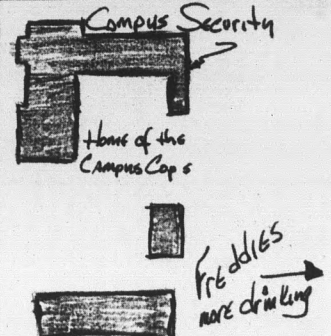 Campus Security
Home of the
Campus Cops
Freddies
more drinking